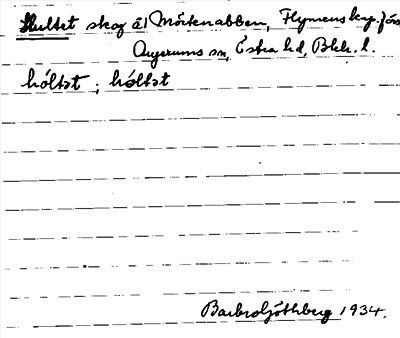 Hultet skog å Mörtenabben, Flymens kap. förs
Augerums sn, Östra hd, Blek. l.
hóltət ; hóltət
Barbro Göthberg 1934.